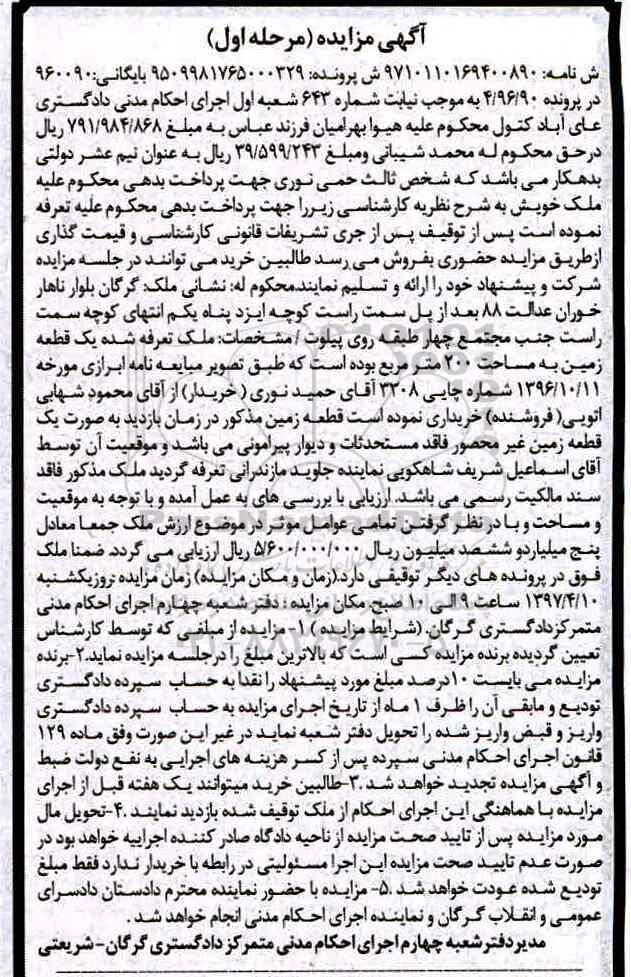 آگهی مزایده (مرحله اول)
ش نامه: ۹۷۱۰۱۱۰۱۶۹۴۰۰۸۹۰ ش پرونده: ۹۵۰۹۹۸۱۷۶۵۰۰۰۳۲۹ بایگانی: ۹۶۰۰۹۰
در پرونده ۴/۹۶/۹۰ به موجب نیابت شماره ۶۴۳ شعبه اول اجرای احکام مدنی دادگستری
علی آباد کتول محکوم علیه هیوا بهرامیان فرزند عباس به مبلغ ۷۹۱/۹۸۴/۸۶۸ ریال
درحق محکوم له محمد شیبانی ومبلغ ۳۹/۵۹۹/۲۴۳ ریال به عنوان نیم عشر دولتی
بدهکار می باشد که شخص ثالث حمی نوری جهت پرداخت بدهی محکوم علیه
ملک خویش به شرح نظریه کارشناسی زیررا جهت پرداخت بدهی محکوم علیه تعرفه
نموده است پس از توقیف پس از جری تشریفات قانونی کارشناسی و قیمت گذاری
ازطریق مزایده حضوری بفروش می رسد طالبین خرید می توانند در جلسه مزایده
شرکت و پیشنهاد خود را ارائه و تسلیم نمایند.محکوم له: نشانی ملک: گرگان بلوار ناهار
خوران عدالت ۸۸ بعد از پل سمت راست کوچه ایزد پناه یکم انتهای کوچه سمت
راست جنب مجتمع چهار طبقه روی پیلوت / مشخصات: ملک تعرفه شده یک قطعه
زمین به مساحت ۲۰۰ متر مربع بوده است که طبق تصویر مبایعه نامه ابرازی مورخه
۱۳۹۶/۱۰/۱۱ شماره چاپی ۳۲۰۸ آقای حمید نوری ( خریدار) از آقای محمود شهابی
اتویی( فروشنده) خریداری نموده است قطعه زمین مذکور در زمان بازدید به صورت یک
قطعه زمین غیر محصور فاقد مستحدثات و دیوار پیرامونی می باشد و موقعیت آن توسط
آقای اسماعیل شریف شاهکویی نماینده جاوید مازندرانی تعرفه گردید ملک مذکور فاقد
سند مالکیت رسمی می باشد. ارزیابی با بررسی های به عمل آمده و با توجه به موقعیت
و مساحت و با در نظر گرفتن تمامی عوامل موثر در موضوع ارزش ملک جمعا معادل
پنج میلیاردو ششصد میلیون ریال ۵/۶۰۰/۰۰۰/۰۰۰ ریال ارزیابی می گردد ضمنا ملک
فوق در پرونده های دیگر توقیفی دارد.(زمان و مکان مزایده) زمان مزایده :روزیکشنبه
۱۳۹۷/۴/۱۰ ساعت ۹ الی ۱۰ صبح. مکان مزایده : دفتر شعبه چهارم اجرای احکام مدنی
متمرکزدادگستری گرگان. (شرایط مزایده ) ۱- مزایده از مبلغی که توسط کارشناس
تعیین گردیده برنده مزایده کسی است که بالاترین مبلغ را درجلسه مزایده نماید.۲-برنده
مزایده می بایست ۱۰درصد مبلغ مورد پیشنهاد را نقدا به حساب سپرده دادگستری
تودیع و مابقی آن را ظرف ۱ ماه از تاریخ اجرای مزایده به حساب سپرده دادگستری
واریز و قبض واریز شده را تحویل دفتر شعبه نماید در غیر این صورت وفق ماده ۱۲۹
قانون اجرای احکام مدنی سپرده پس از کسر هزینه های اجرایی به نفع دولت ضبط
و آگهی مزایده تجدید خواهد شد .۳-طالبین خرید میتوانند یک هفته قبل از اجرای
مزایده با هماهنگی این اجرای احکام از ملک توقیف شده بازدید نمایند .۴-تحویل مال
مورد مزایده پس از تایید صحت مزایده از ناحیه دادگاه صادر کننده اجراییه خواهد بود در
صورت عدم تایید صحت مزایده این اجرا مسئولیتی در رابطه با خریدار ندارد فقط مبلغ
تودیع شده عودت خواهد شد .۵- مزایده با حضور نماینده محترم دادستان دادسرای
عمومی و انقلاب گرگان و نماینده اجرای احکام مدنی انجام خواهد شد .
مدیردفترشعبه چهارم اجرای احکام مدنی متمرکز دادگستری گرگان- شریعتی